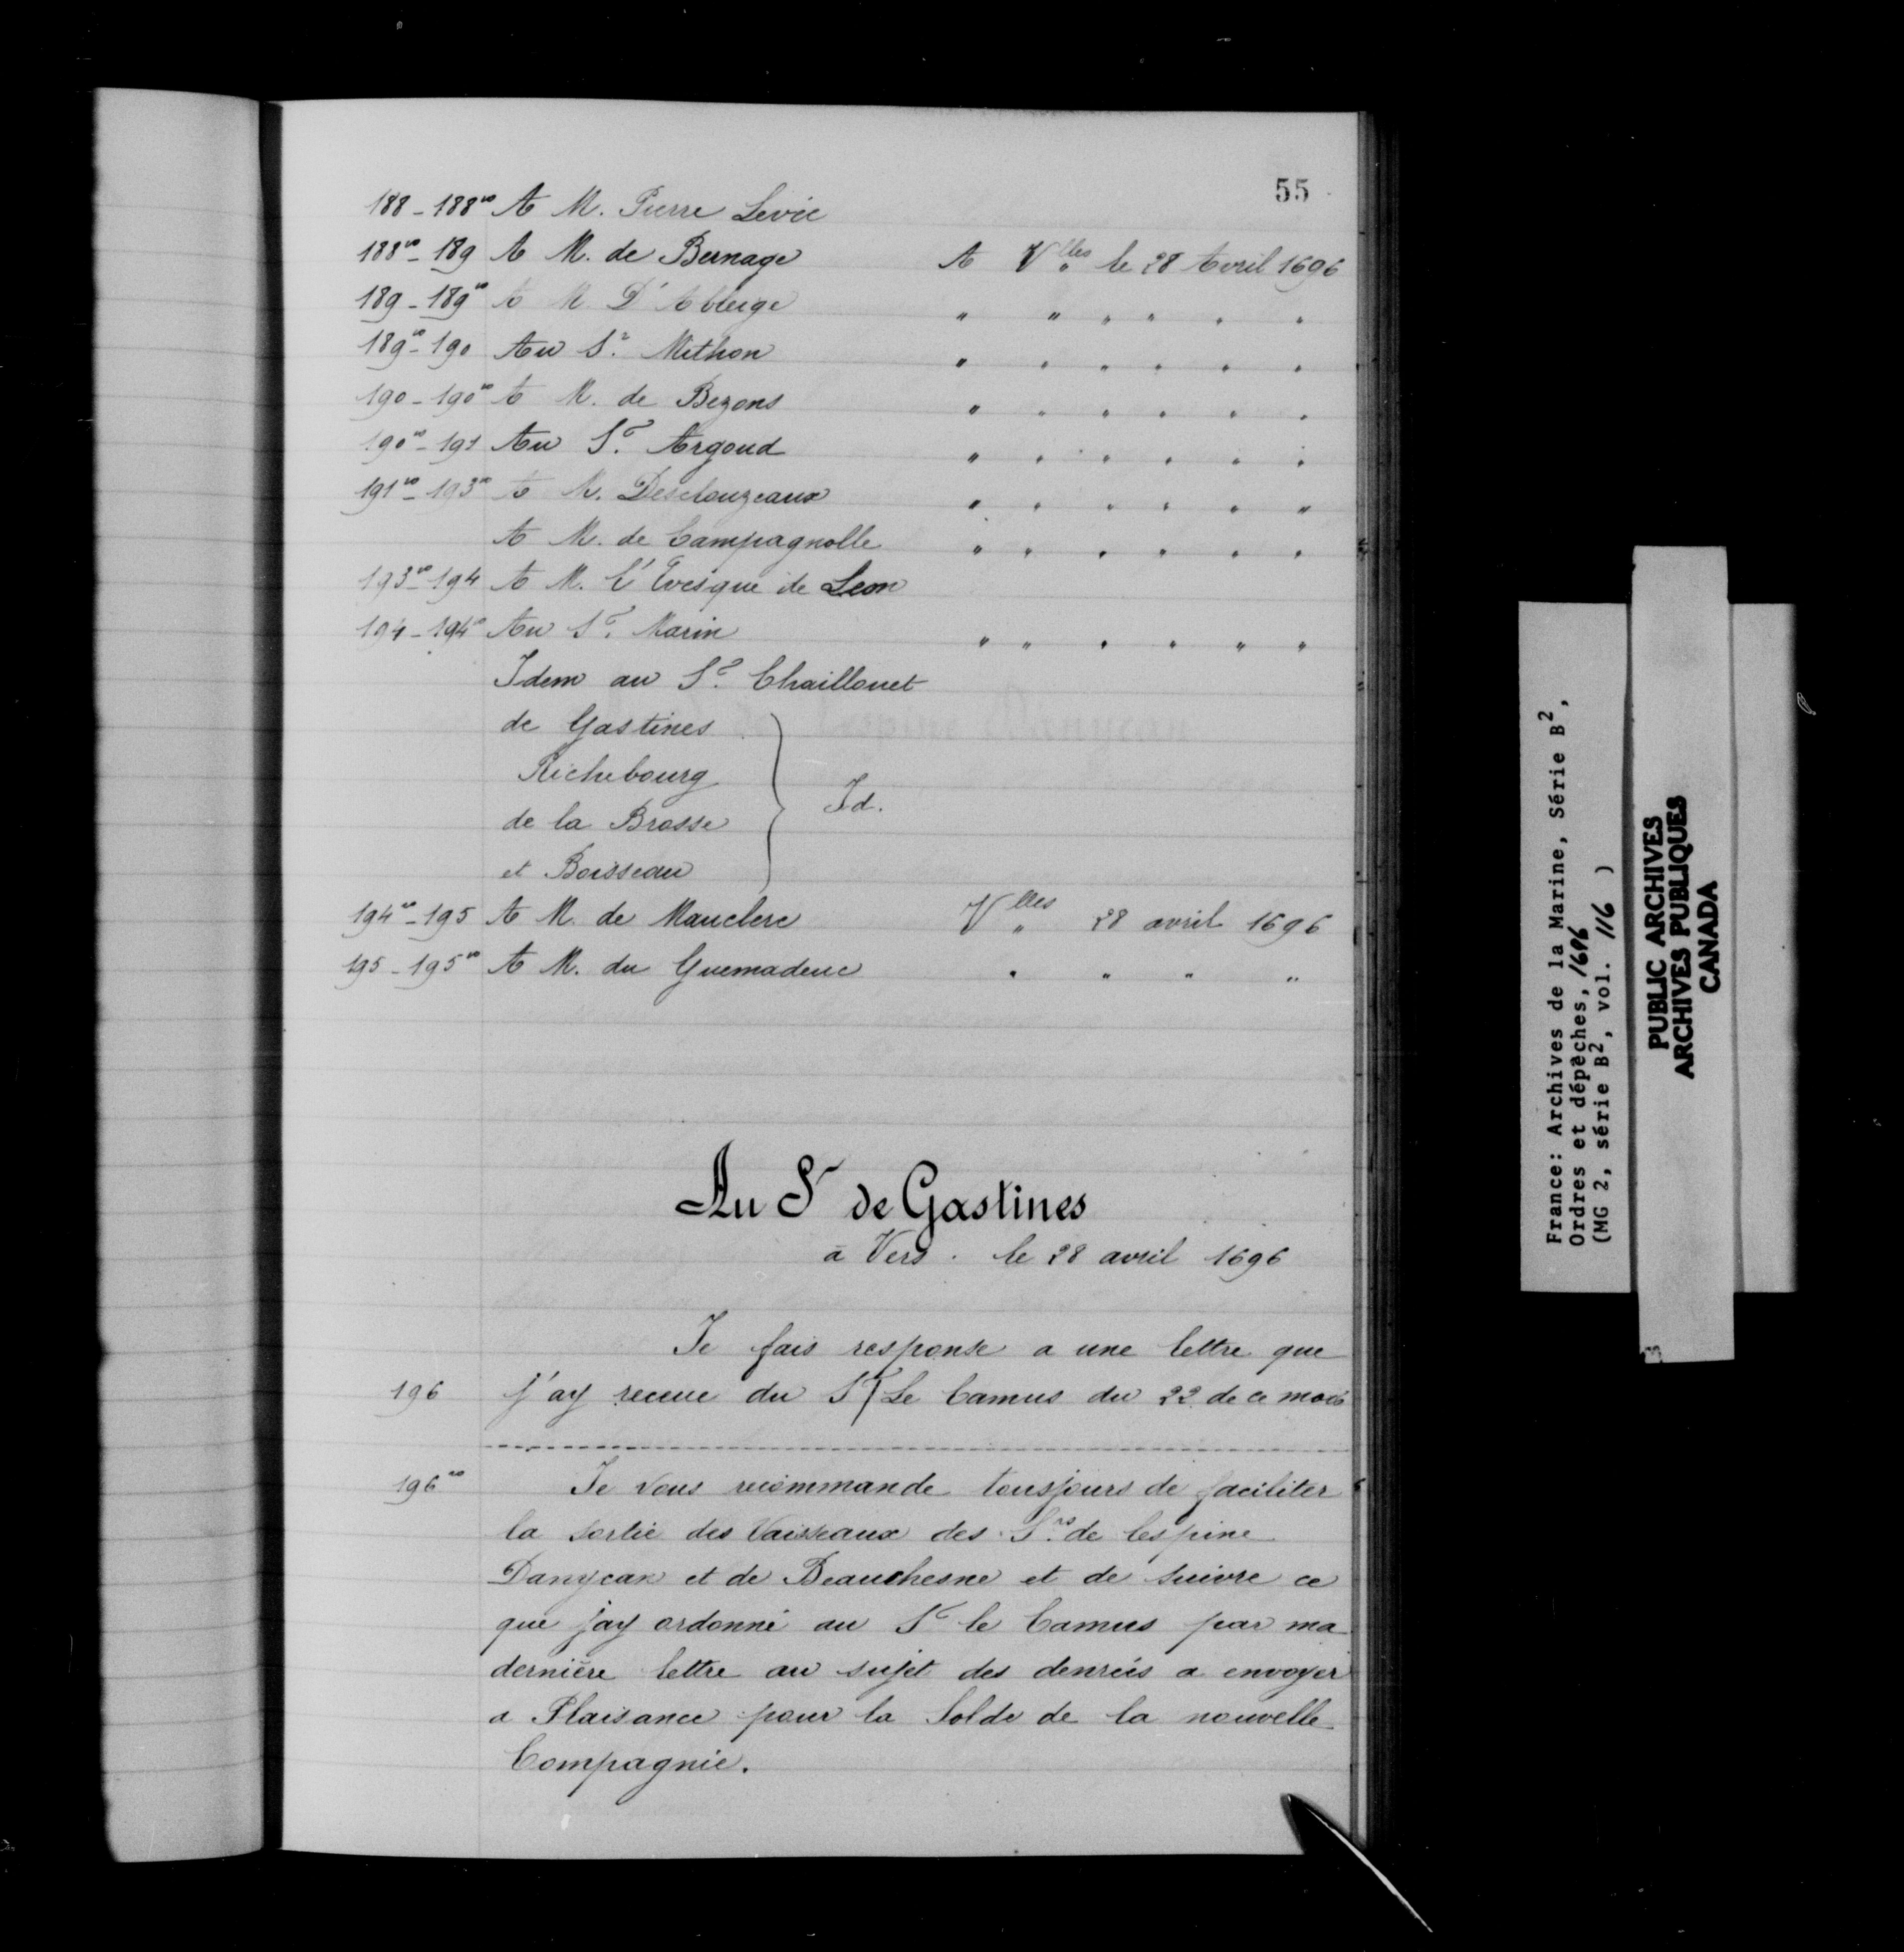 55
188 - 188vo A M. Pierre Levée
188vo - 189 A M. de Bernage A Vlles le 28 Avril 1696
189 - 189vo A M. D'Ableige " " " " " "
189vo - 190 Au Sr. Mithon " " " " " "
190 - 190vo A M. de Bezons " " " " " "
190vo - 191 Au Sr. Argoud " " " " " "
191vo - 193vo A M. Desclouzeaux " " " " " "
A M. de Campagnolle " " " " " "
193vo - 194 A M. l'Evesque de Leon
194 - 194vo Au Sr. Marin " " " " " "
Idem au Sr. Chaillouet
de Gastines
Richebourg
de la Brosse } Id.
et Boisseau
194vo - 195 A M. de Mauclerc Vlles 28 avril 1696
195 - 195vo A M. du Guemadeuc " " " "
Au Sr de Gastines
à Vers. le 28 avril 1696
Je fais response a une lettre que
196 j'ay receue du Sr / Le Camus du 22 de ce mois
196vo Je vous recommande tousjours de faciliter
la sortie des Vaisseaux des Srs. de lespine
Danycan et de Beauchesne et de suivre ce
que jay ordonné au Sr le Camus par ma
dernière lettre au sujet des denrées a envoyer
a Plaisance pour la Solde de la nouvelle
Compagnie.
France: Archives de la Marine, Série B2,
Ordres et dépêches, 1696
(MG 2, série B2, vol. 116 )
PUBLIC ARCHIVES
ARCHIVES PUBLIQUES
CANADA